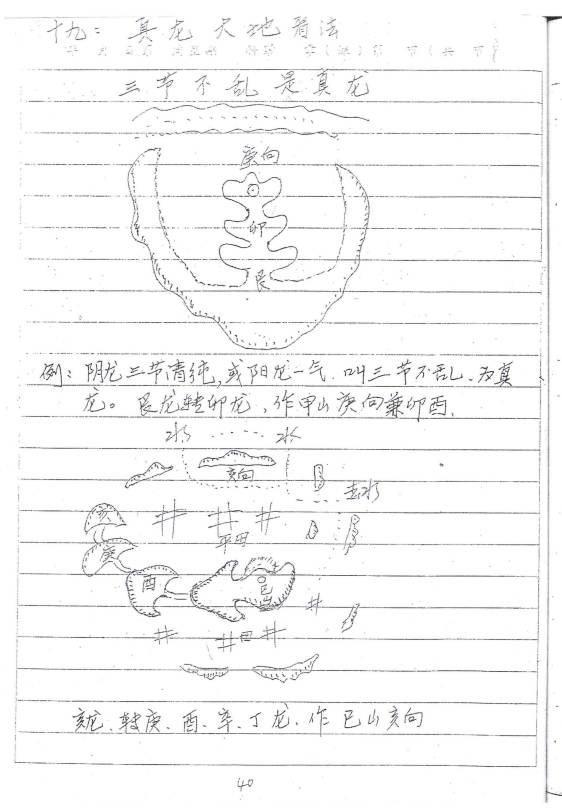 十九：真龙大地看法
三节不乱是真龙
庚向
卯
艮
例：阴龙三节清纯，或阳龙一气．叫三节不乱．为真
龙。艮龙转卯龙，作甲山庚向兼卯酉．
水 水
亥向
去水
亥
平田
庚
酉
巳山
田
亥龙、转庚、酉、辛、丁龙、作巳山亥向
40